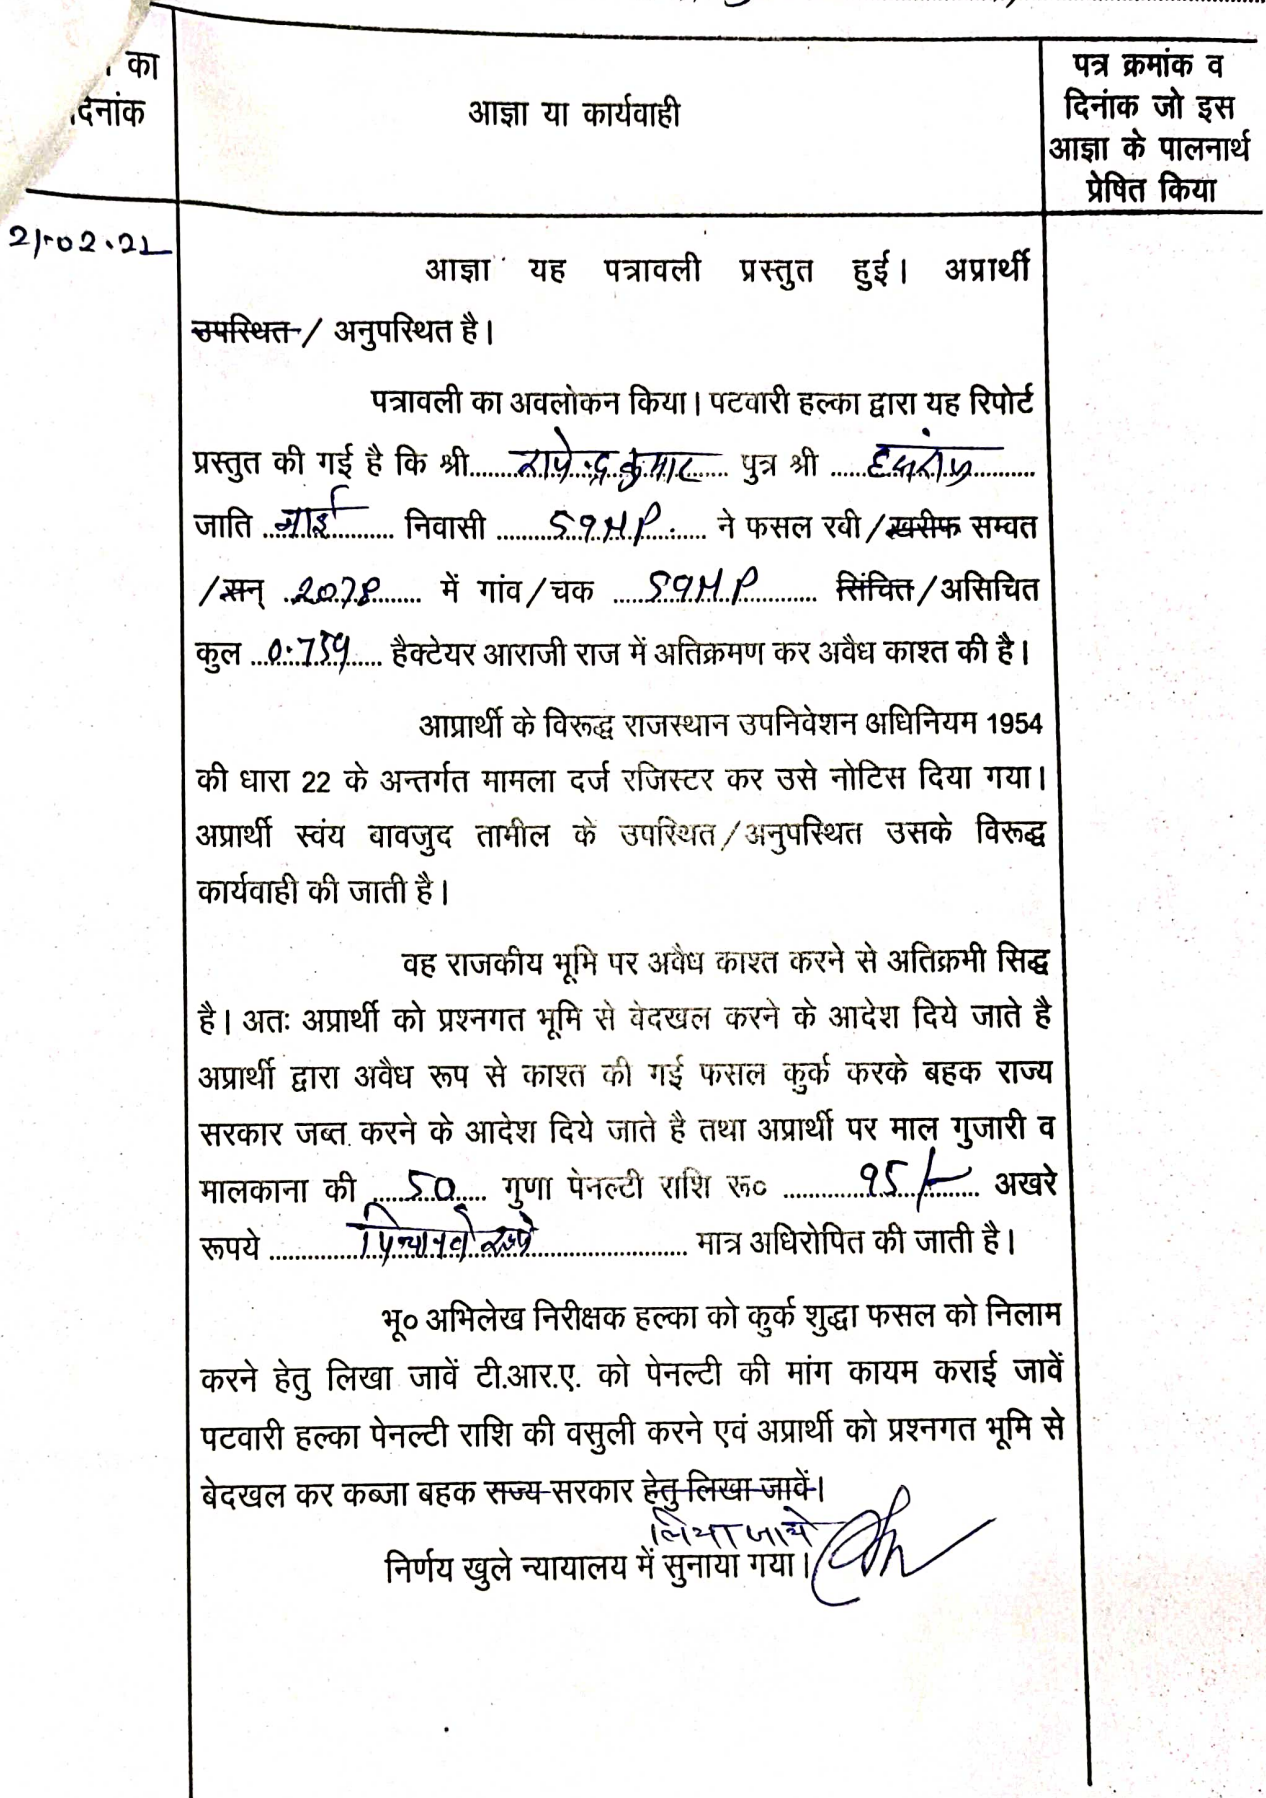 का
दिनांक
आज्ञा या कार्यवाही
पत्र क्रमांक व
दिनांक जो इस
आज्ञा के पालनार्थ
प्रेषित किया
21-02-22
आज्ञा यह पत्रावली प्रस्तुत हुई। अप्रार्थी
उपस्थित / अनुपस्थित है।
पत्रावली का अवलोकन किया। पटवारी हल्का द्वारा यह रिपोर्ट
प्रस्तुत की गई है कि श्री..... कुमार ..... पुत्र श्री .....
जाति ..... निवासी ..... 59MP ..... ने फसल रबी /खरीफ सम्वत
/सन् ..2078.. में गांव/चक ..... 59MP ..... सिंचित/असिचित
कुल ..0.759.. हैक्टेयर आराजी राज में अतिक्रमण कर अवैध काश्त की है।
आप्रार्थी के विरूद्ध राजस्थान उपनिवेशन अधिनियम 1954
की धारा 22 के अन्तर्गत मामला दर्ज रजिस्टर कर उसे नोटिस दिया गया।
अप्रार्थी स्वंय बावजुद तामील के उपस्थित/अनुपस्थित उसके विरूद्ध
कार्यवाही की जाती है।
वह राजकीय भूमि पर अवैध काश्त करने से अतिक्रमी सिद्ध
है। अतः अप्रार्थी को प्रश्नगत भूमि से बेदखल करने के आदेश दिये जाते है
अप्रार्थी द्वारा अवैध रूप से काश्त की गई फसल कुर्क करके बहक राज्य
सरकार जब्त करने के आदेश दिये जाते है तथा अप्रार्थी पर माल गुजारी व
मालकाना की ..50.. गुणा पेनल्टी राशि रू० ..... 95/- ..... अखरे
रूपये ..... पिन्चानवे रूपये ..... मात्र अधिरोपित की जाती है।
भू० अभिलेख निरीक्षक हल्का को कुर्क शुद्धा फसल को निलाम
करने हेतु लिखा जावें टी.आर.ए. को पेनल्टी की मांग कायम कराई जावें
पटवारी हल्का पेनल्टी राशि की वसुली करने एवं अप्रार्थी को प्रश्नगत भूमि से
बेदखल कर कब्जा बहक राज्य सरकार हेतु लिखा जावें।
लिया जावे
निर्णय खुले न्यायालय में सुनाया गया।